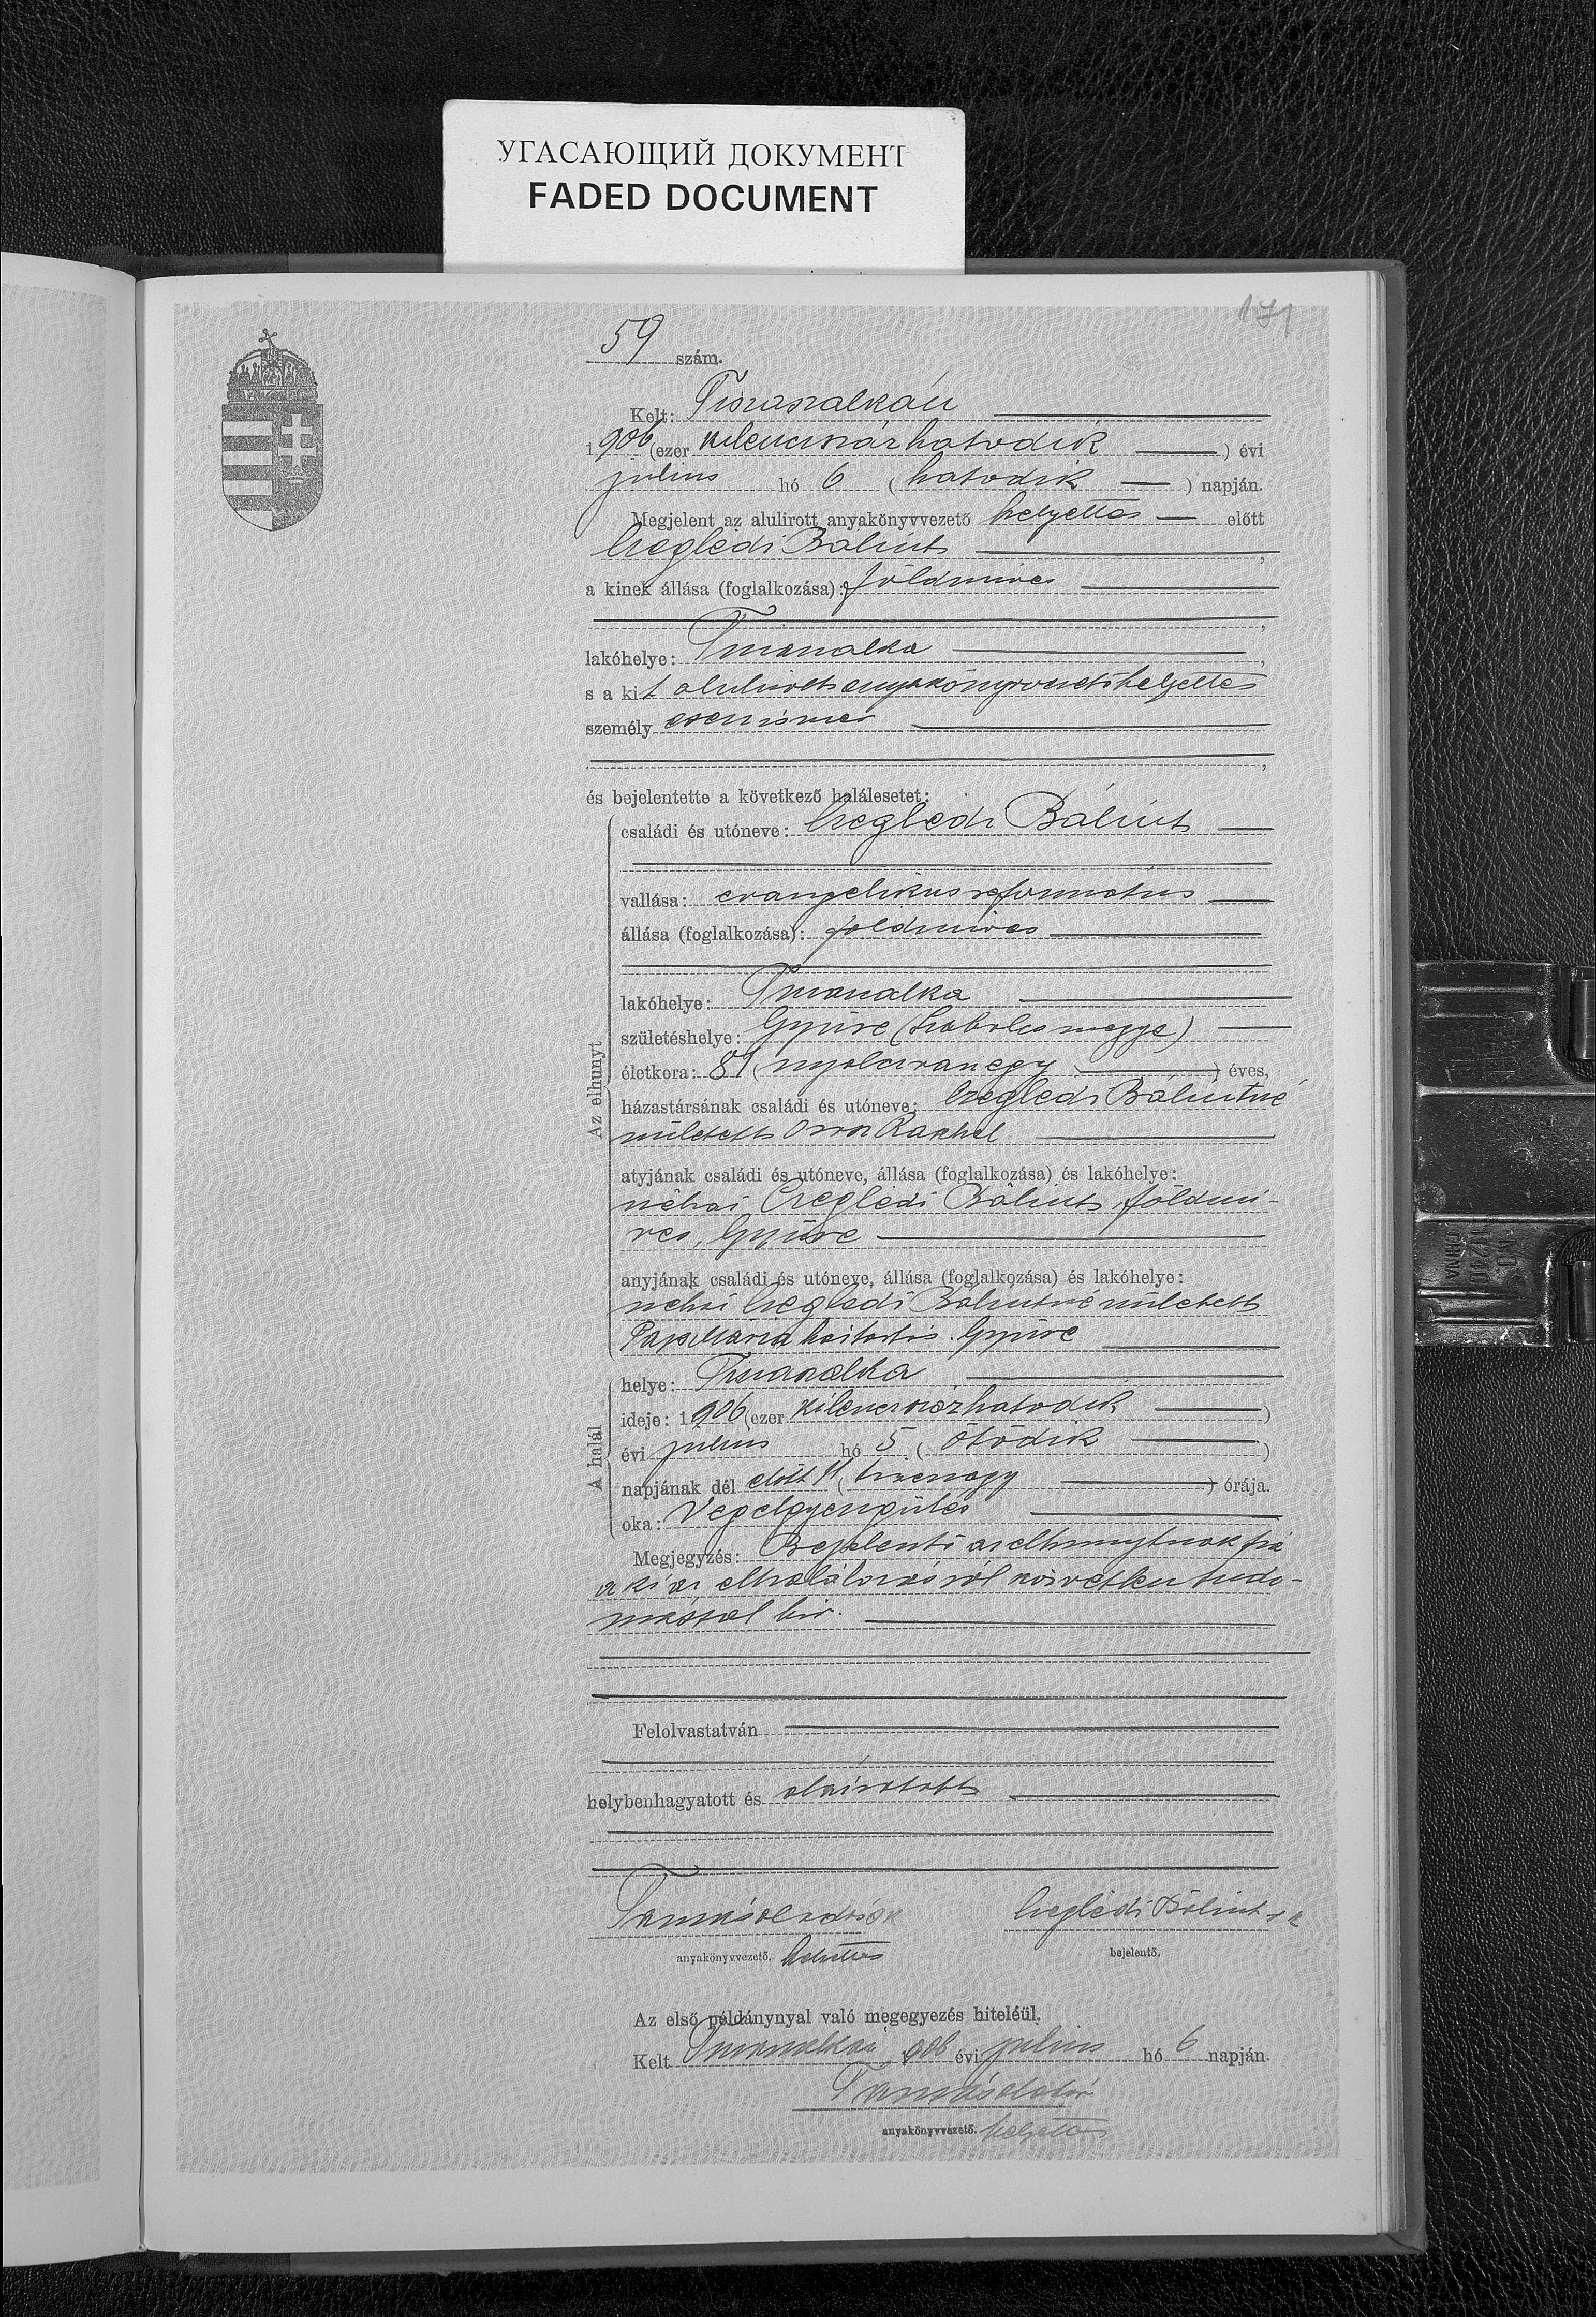 УГАСАЮЩИЙ ДОКУМЕНТ
FADED DOCUMENT
171
59 szám.
Kelt: Tiszaszalkán
1906 (ezer kilencszázhatodik) évi
julius hó 6 (hatodik) napján.
Megjelent az alulirott anyakönyvvezető helyettes előtt
Czeglédi Bálint,
a kinek állása (foglalkozása): földmives
,
lakóhelye: Tiszaszalka,
s a kit alulirott anyakönyvvezető helyettes
személyesen ismer
,
és bejelentette a következő halálesetet:
Az elhunyt
családi és utóneve: Czeglédi Bálint
vallása: evangelikus református
állása (foglalkozása): földmives
lakóhelye: Tiszaszalka
születéshelye: Gyüre (Szabolcs megye)
életkora: 81 (nyolczvanegy) éves,
házastársának családi és utóneve: Czeglédi Bálintné
született Rakhel
atyjának családi és utóneve, állása (foglalkozása) és lakóhelye:
néhai Czeglédi Bálint földmi-
ves, Gyüre
anyjának családi és utóneve, állása (foglalkozása) és lakóhelye:
néhai Czeglédi Bálintné született
Pap Mária háztartás. Gyüre
A halál
helye: Tiszaszalka
ideje: 1906 (ezer kilencszázhatodik)
évi julius hó 5 (ötödik)
napjának dél előtt 11 (tizenegy) órája.
oka: Végelgyengülés
Megjegyzés: Bejelentő az elhunytnak fia
a ki az elhalálozásról közvetlen tudo-
mással bir.
Felolvastatván
helybenhagyatott és aláiratott
Tamás
anyakönyvvezető. helyettes
Czeglédi Bálint
bejelentő.
Az első példánynyal való megegyezés hiteléül.
Kelt Tiszaszalkán 906 évi julius hó 6 napján.
Tamás
anyakönyvvezető. helyettes
NO. 11240
CHINA